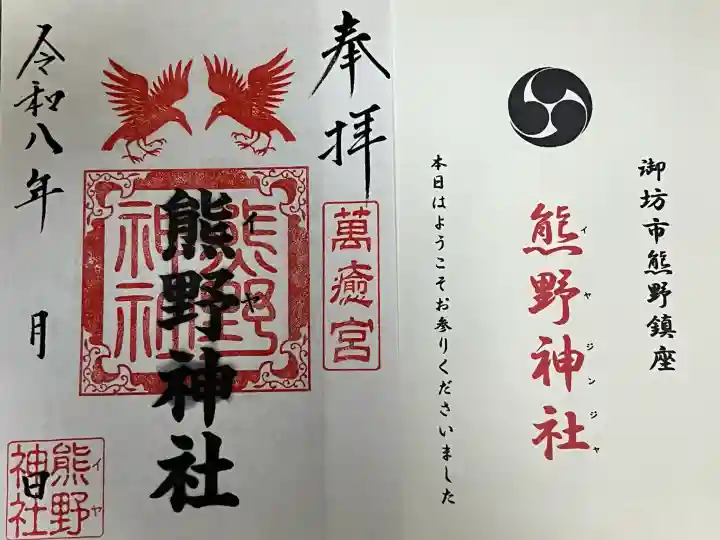 御坊市熊野鎮座
熊野神社
イヤジンジャ
本日はようこそお参りくださいました
奉拝
萬癒宮
熊野神社
イヤ
熊野
神社
令和八年
月
日
熊野
イヤ
神社